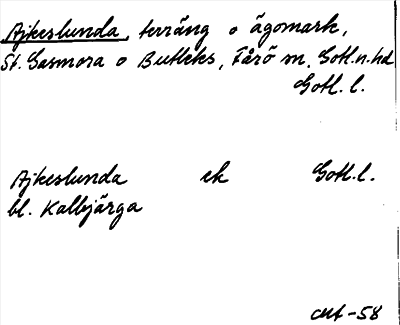 Ajkeslunda, terräng o ägomark,
St. Gasmora o Butleks, Fårö sn. Gotl. n. hd
Gotl. l.
Ajkeslunda ek Gotl. l.
bl. Kalbjärga
-58